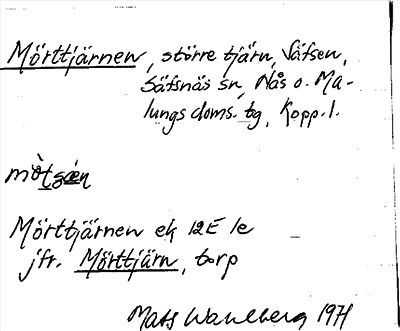 Mörttjärnen, större tjärn, Säfsen,
Säfsnäs sn, Nås o. Ma-
lungs doms. tg, Kopp. l.
Mörttjärnen ek 12E 1e
jfr. Mörttjärn, torp
Mats Wahlberg 1971